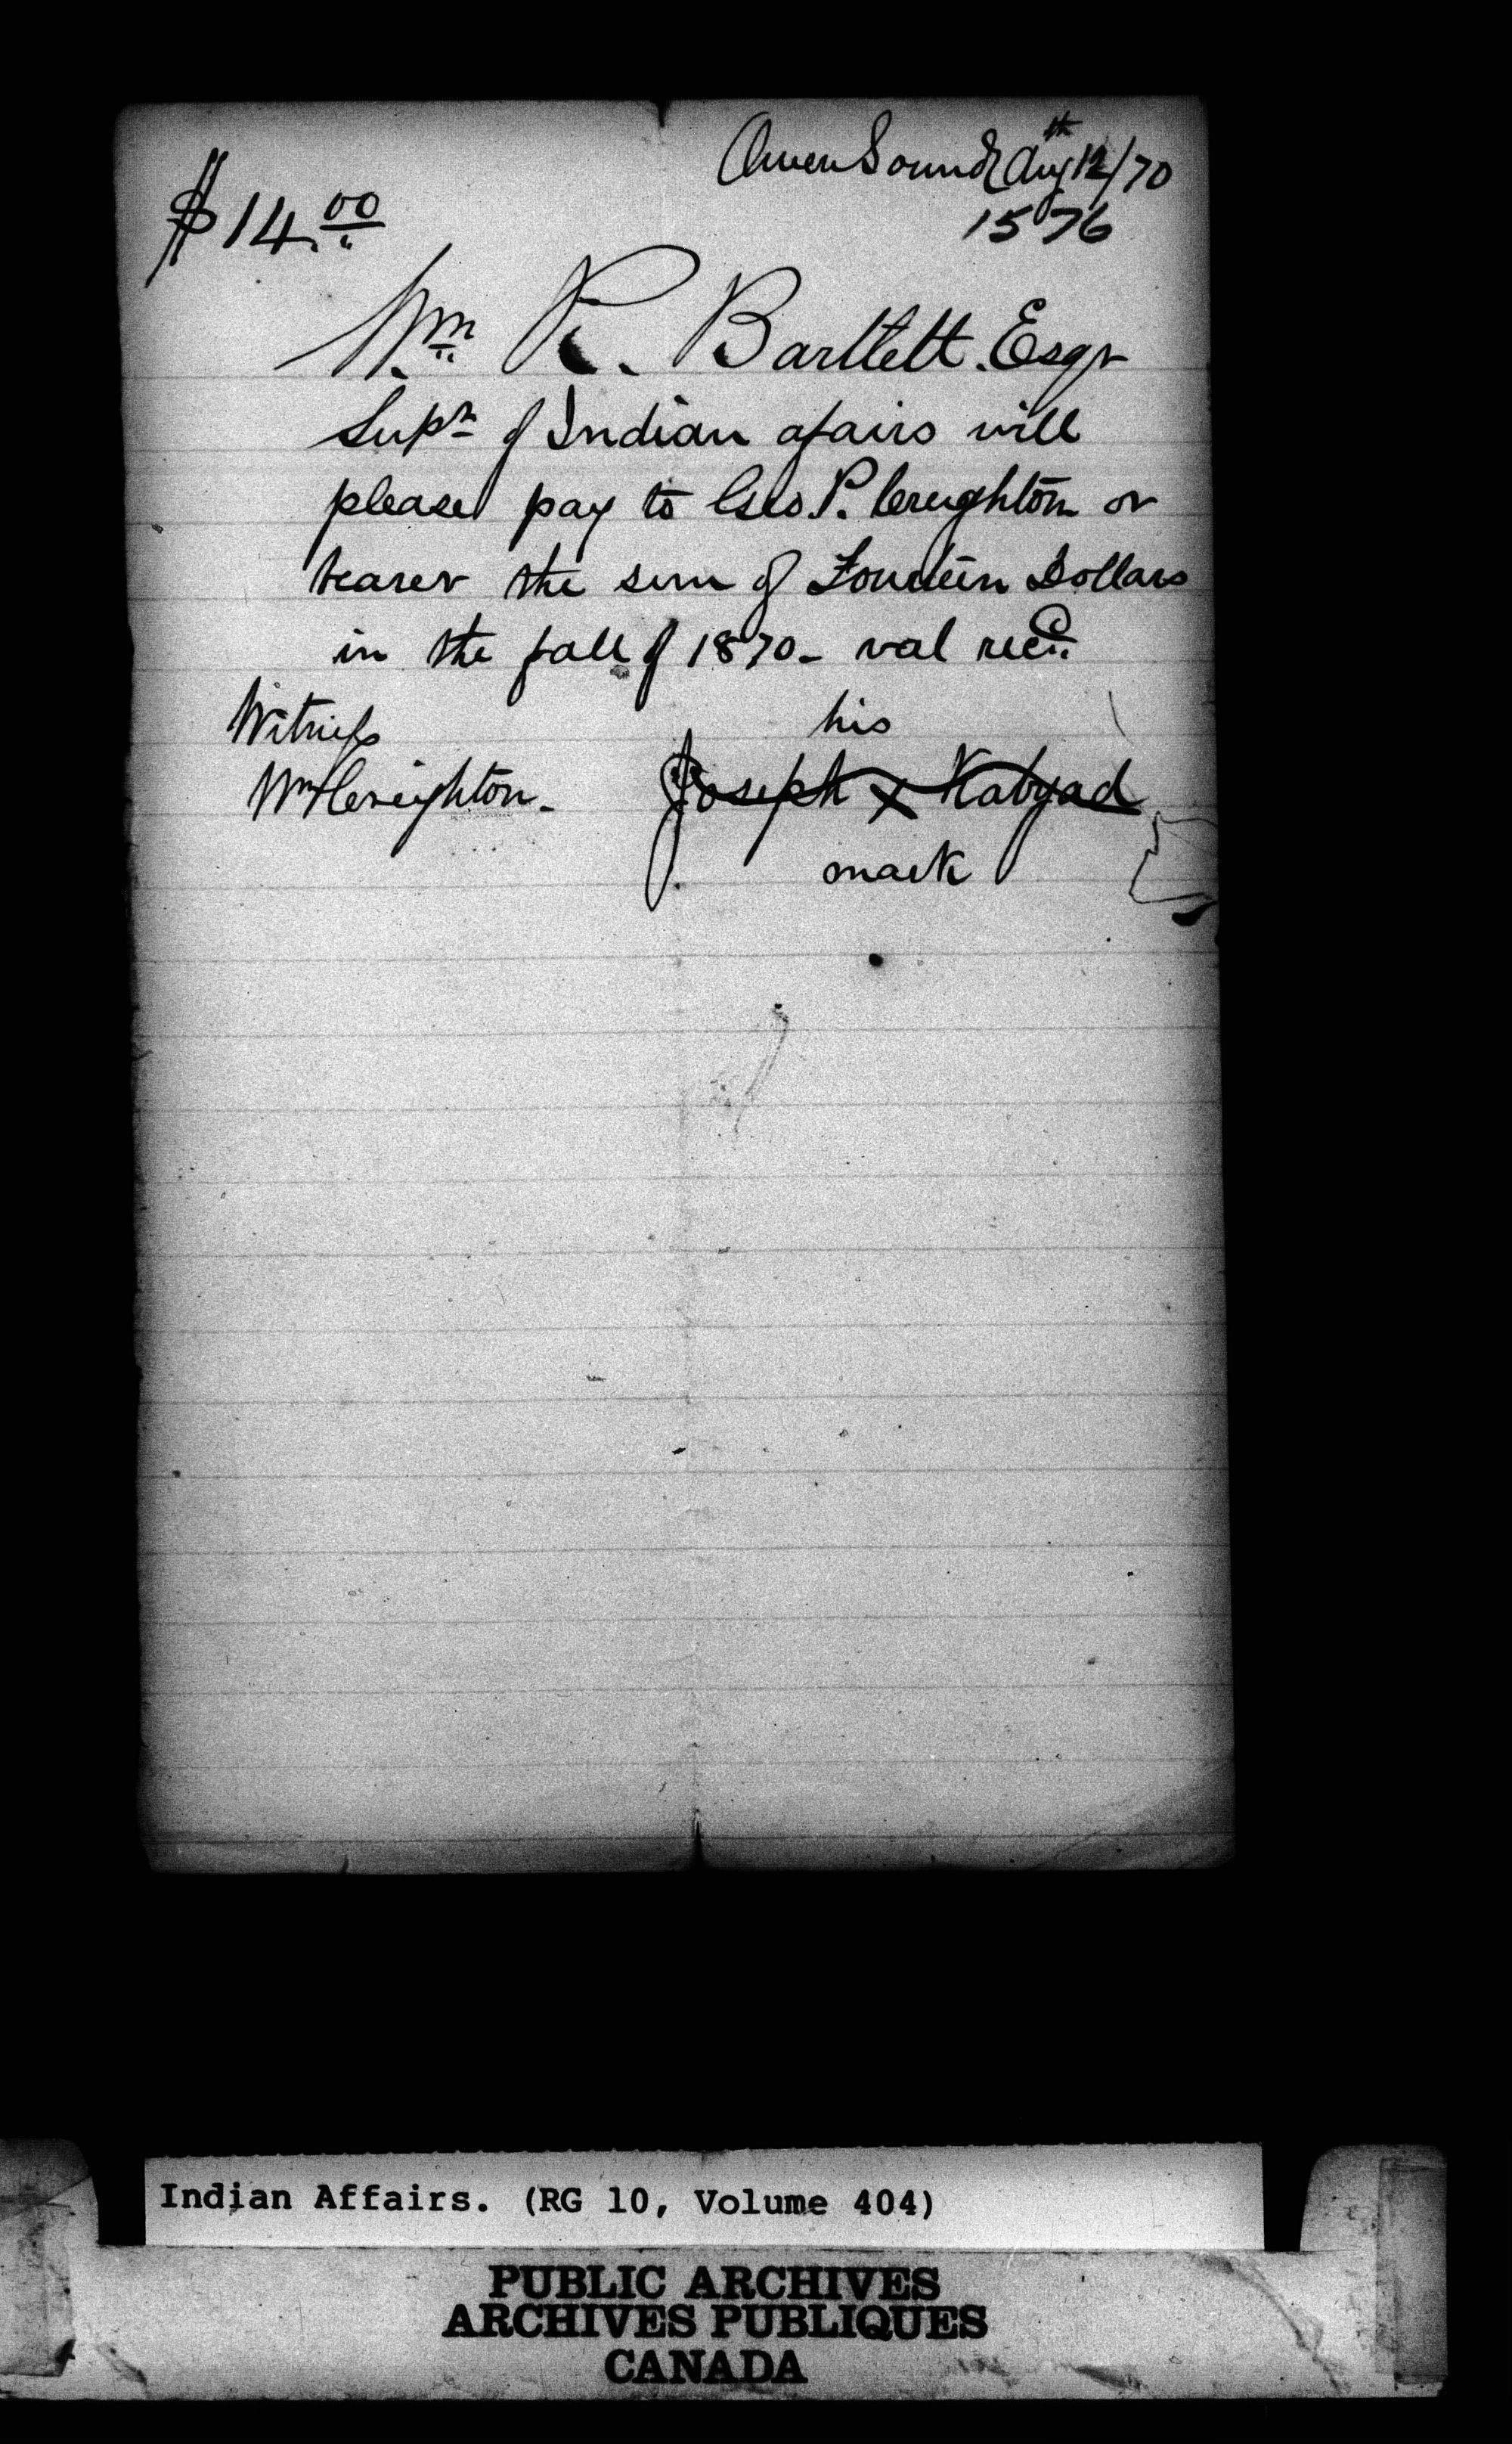 Owen Sound Aug 12th/70
1576
$14.00
Wm R. Bartlett. Esqr
Supt of Indian afairs will
please pay to Geo. P. Creighton or
bearer the sum of Fourteen Dollars
in the fall of 1870 - val recd.
Witness his
Wm Creighton - Joseph X Kabyad
mark
Indian Affairs. (RG 10, Volume 404)
PUBLIC ARCHIVES
ARCHIVES PUBLIQUES
CANADA